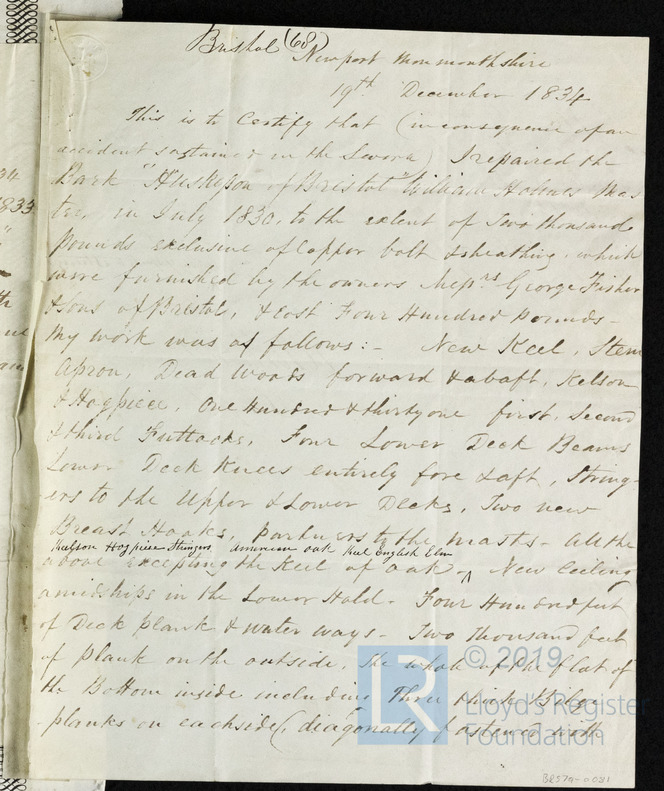 Bristol (68)
Newport Monmouthshire
19th December 1834
This is to Certify that (in consequence of an
accident sustained in the Severn) I repaired the
Bark "Huskisson of Bristol" William Holmes Mas
ter, in July 1830, to the extent of Two thousand
pounds exclusive of Copper bolt & sheathing, which
were furnished by the owners Messrs George Fisher
& Sons of Bristol, & cost Four Hundred pounds -
My work was as follows :- New Keel, Stem
Apron, Dead Woods forward & abaft, Kelson
& Hogpiece, One Hundred & thirty one first, Second
& third Futtocks, Four Lower Deck Beams
Lower Deck Knees entirely fore & aft, String-
-ers to the Upper & Lower Decks, Two new
Breast Hooks, partners to the masts - All the
Keelson Hogpiece Stringers American oak Keel English Elm
above excepting the Keel of oak - ^ New Ceiling
amidships in the Lower Hold - Four Hundred feet
of Deck plank & water ways - Two thousand feet
of plank on the outside, The whole of the flat of
the Bottom inside including Three thick Bilge
planks on each side, (diagonally fastened with
© 2019
LR
Lloyd's Register
Foundation
BRS79-0031
34
1833
th